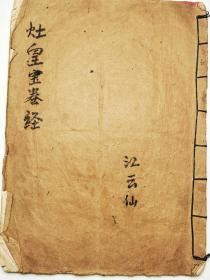 灶皇宝卷经
江云仙